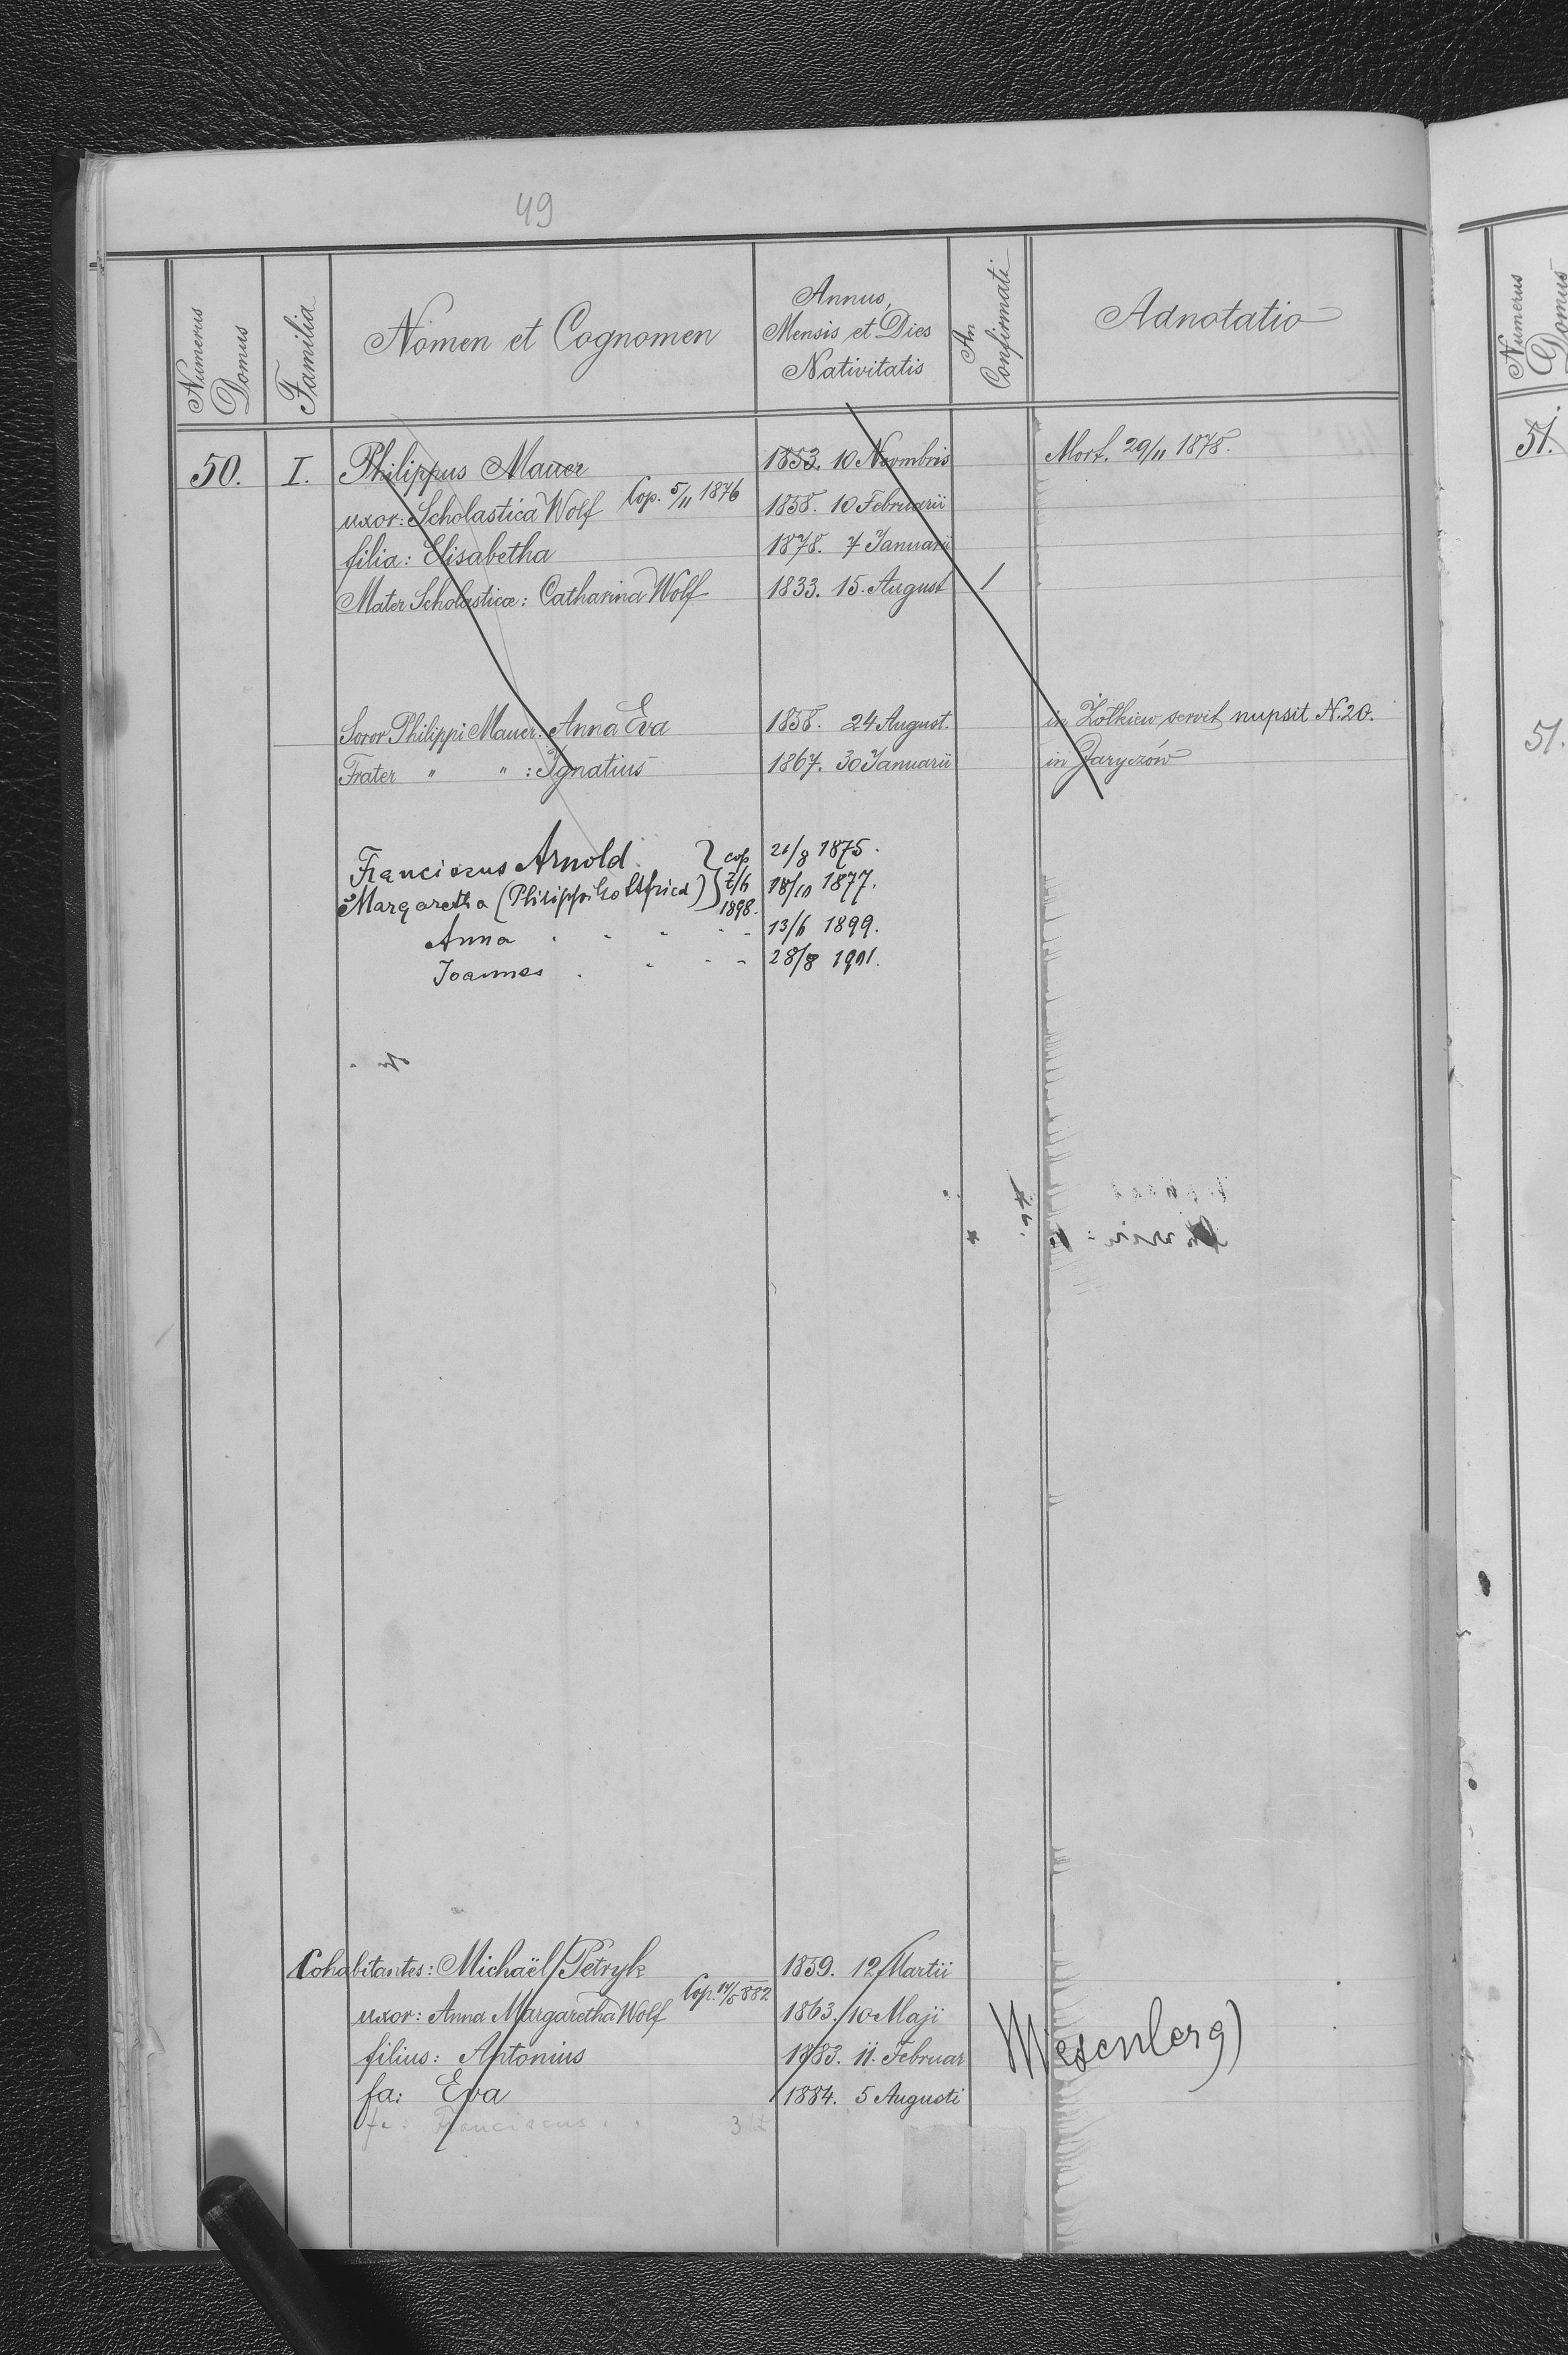 49
Numerus Domus
Familia
Nomen et Cognomen
Annus, Mensis et Dies Nativitatis
An Confirmati
Adnotatio
50. I. Philippus Mauer 1853. 10 Novmbris Mort. 29/11 1878.
uxor: Scholastica Wolf Cop. 5/11 1876 1858. 10 Februarii
filia: Elisabetha 1878. 7 Januarii
Mater Scholasticæ: Catharina Wolf 1833. 15. August /
Soror Philippi Mauer: Anna Eva 1858. 24 August. in Żołkiew servit nupsit N. 20.
Frater " " : Ignatius 1867. 30 Januarii in Jaryczów
Franciscus Arnold } cop 21/8 1875.
Margaretha (Philippi Gottfried) } 7/6 1898. 18/10 1877.
Anna 13/6 1899.
Joannes 28/8 1901.
Cohabitantes: Michaël Petryk 1859. 12 Martii
uxor: Anna Margaretha Wolf Cop. 14/5 882 1863. 10 Maji
filius: Antonius 1883. 11. Februar Wiesenberg)
fa: Eva 1884. 5 Augusti
Franciscus
Numerus Domus
51.
51.